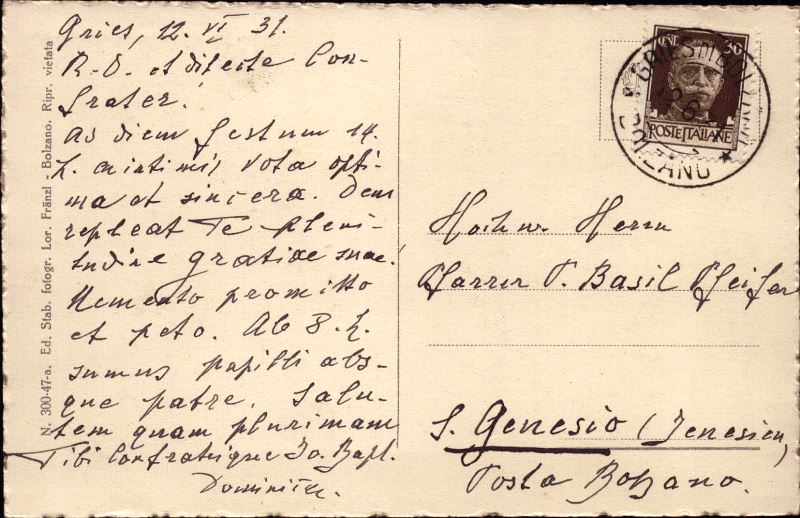 Gries, 12. VI 31.
R. D. et dilecte Con-
frater!
Ad diem festum 14.
h. ex intimis vota opti-
ma et sincera. Deus
repleat Te pleni-
tudine gratiae suae!
Memento promitto
et peto. Ab 8. h.
sumus pupilli abs-
que patre. Salu-
tem quam plurimam
Tibi Confratrique Jo. Bapt.
N. 300-47-a. Ed. Stab. fotogr. Lor. Fränzl - Bolzano. Ripr. vietata
CENT. 30
POSTE ITALIANE
GRIES DI BOLZANO
BOLZANO
Hochw. Herrn
Pfarrer P. Basil Pfeifer
S. Genesio (Jenesien)
Posta Bolzano.